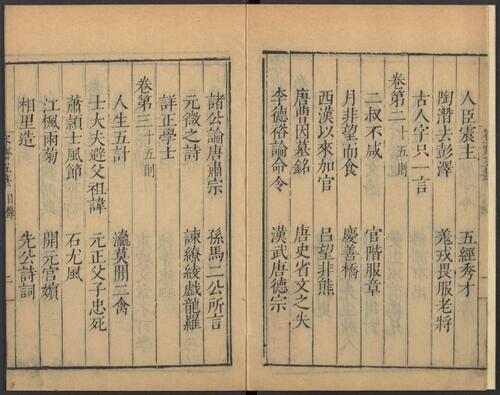 人臣震主　五經秀才
陶潛去彭澤　羌戎畏服老將
古人字只一言
卷第二十五則
二叔不咸　官階服章
月非望而食　慶善橋
西漢以來加官　呂望非熊
唐曹因墓銘　唐史省文之失
李德裕論命令　漢武唐德宗
諸公論唐肅宗　孫馬二公所言
元微之詩　諫繚綾戲龍羅
詳正學士
卷第三十五則
人生五計　瀛莫間二禽
士大夫避父祖諱　元正父子忠死
蕭穎士風節　石尤風
江楓雨菊　開元宮嬪
相里造　先公詩詞